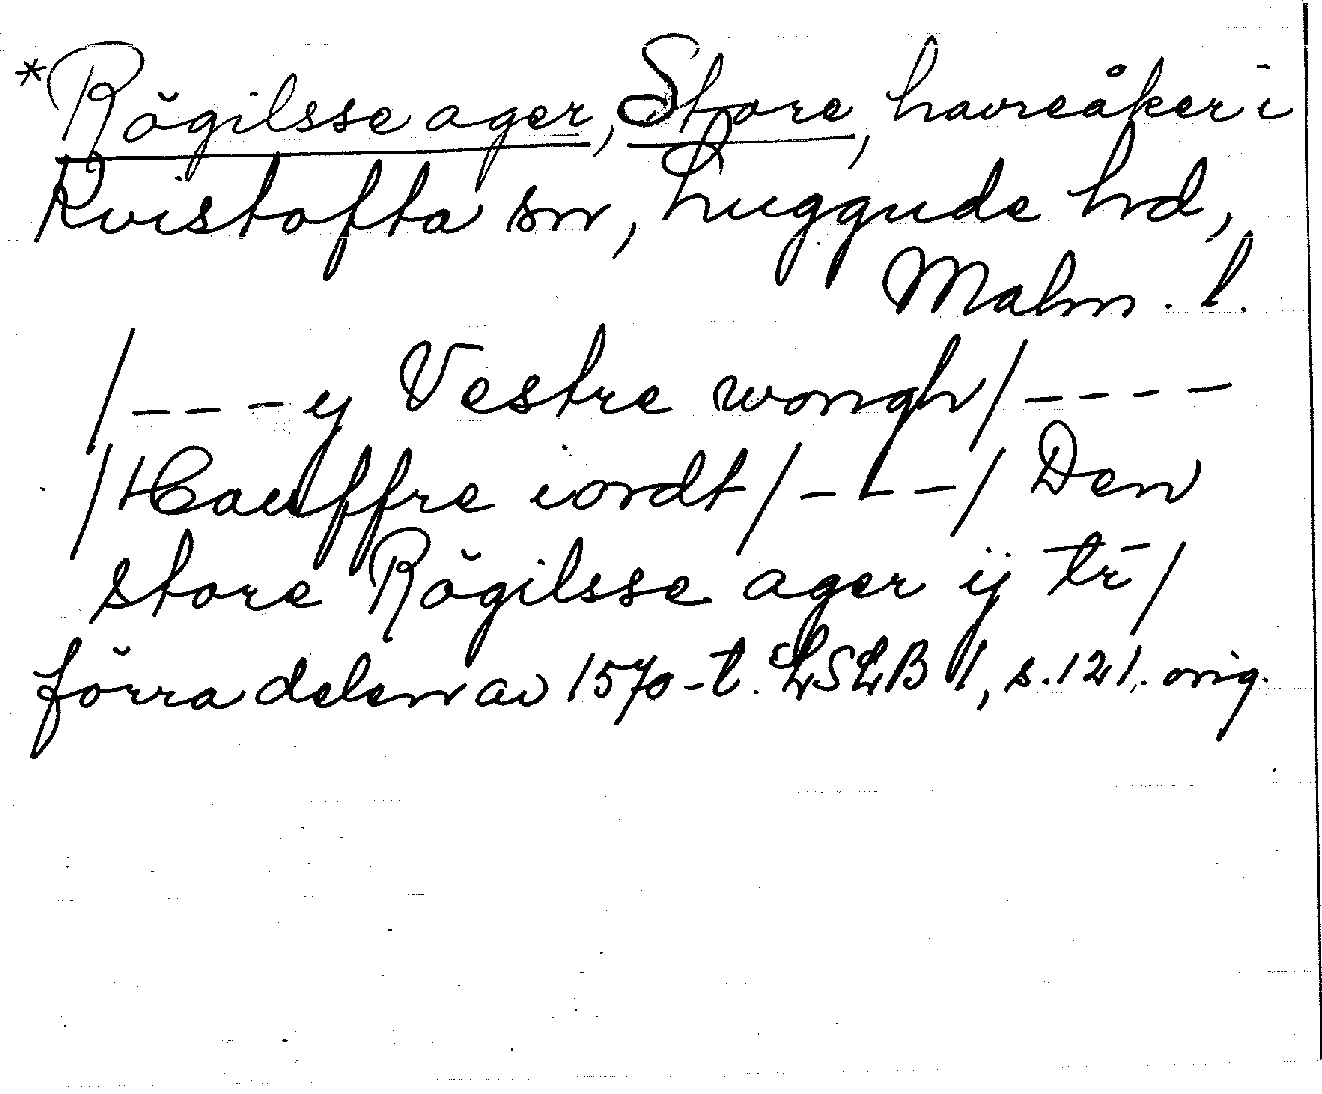 *Rögilsse ager, Store, havreåker i
Kvistofta sn, Luggude hd,
Malm. l.
/---y Vestre wongh/----
/Hauffre iordt/---/Den
store Rögilsse ager ij tr/
förra delen av 1570-t. LSLB 1, s.121. orig.